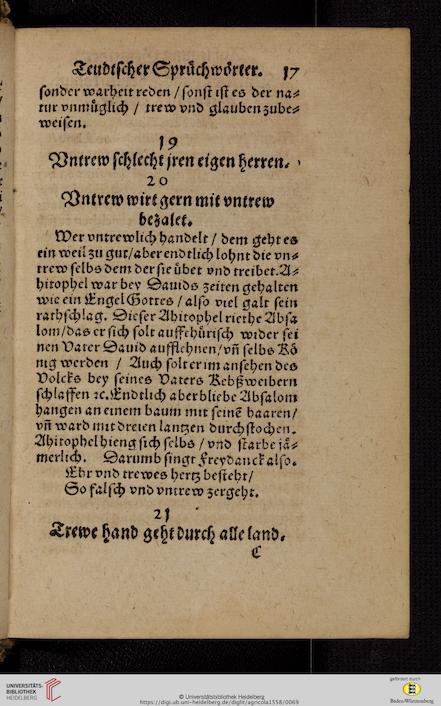 Teudtscher Sprüchwörter. 17
sonder warheit reden / sonst ist es der na⸗
tur vnmüglich / trew vnd glauben zube⸗
weisen.
19
Vntrew schlecht jren eigen herren.
20
Vntrew wirt gern mit vntrew
bezalet.
Wer vntrewlich handelt / dem geht es
ein weil zu gut/aber endtlich lohnt die vn⸗
trew selbs dem der sie übet vnd treibet. A⸗
hitophel war bey Dauids zeiten gehalten
wie ein Engel Gottes / also viel galt sein
rathschlag. Dieser Ahitophel riethe Absa
lom/das er sich solt auffrhürisch wider sei
nen Vater Dauid aufflehnen/vñ selbs Kö
nig werden / Auch solt er im ansehen des
Volcks bey seines Vaters Kebßweibern
schlaffen ꝛc. Endtlich aber bliebe Absalom
hangen an einem baum mit seinẽ haaren/
vñ ward mit dreien lantzen durchstochen.
Ahitophel hieng sich selbs / vnd starbe jä⸗
merlich. Darumb singt Freydanck also.
Ehr vnd trewes hertz besteht/
So falsch vnd vntrew zergeht.
21
Trewe hand geht durch alle land.
C
UNIVERSITÄTS-
BIBLIOTHEK
HEIDELBERG
© Universitätsbibliothek Heidelberg
https://digi.ub.uni-heidelberg.de/diglit/agricola1558/0069
gefördert durch
Baden-Württemberg